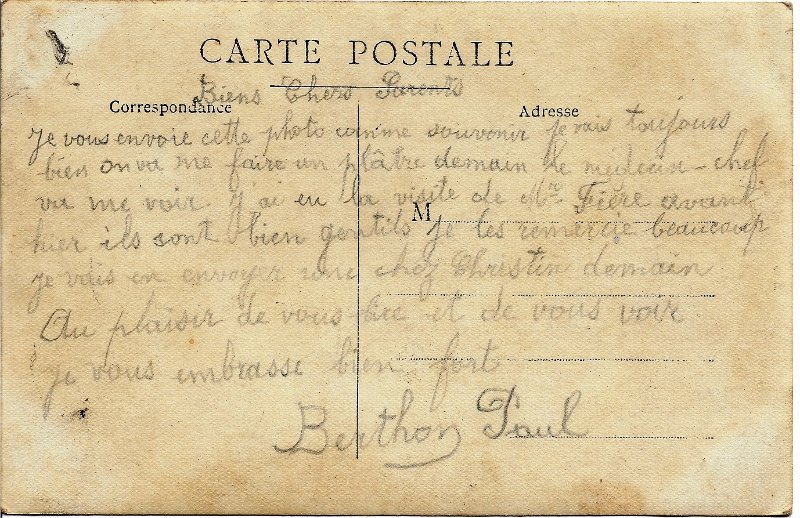 CARTE POSTALE
Biens Chers Parents
Correspondance
Adresse
Je vous envoie cette photo comme souvenir je vais toujours
bien on va me faire un plâtre demain le médecin-chef
va me voir. j'ai eu la visite de Mr Fière avant
M
hier ils sont bien gentils je les remercie beaucoup
je vais en envoyer une chez Christin demain
Au plaisir de vous lire et de vous voir
je vous embrasse bien fort
Berthon Paul